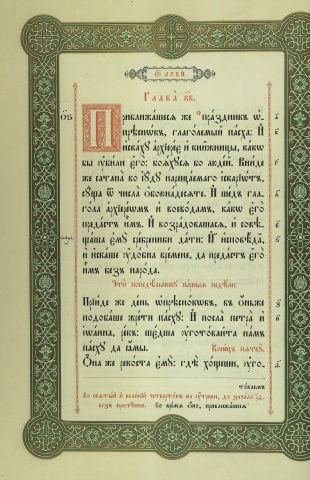 Ѿ ЛꙊКИ
Глава̀ к҃в.
Приближашесѧ же пра́здникъ ѡ҆-
прѣсно́къ, глаго́лемый па́сха: И҆
и҆ска́хꙋ а҆рхїере́є и҆ кни́жницы, ка́кѡ
бы ᲂу҆би́ли є҆го̀: боѧ́хꙋсѧ бо люді́й. Вни́де
же сатана̀ во і҆ꙋ́дꙋ нарица́емаго і҆скарїѡ́тъ,
сꙋ́ща ѿ числа̀ ѻ҆боюна́десѧте. И҆ ше́дъ гла-
го́ла а҆рхїере́ѡмъ и҆ воево́дамъ, ка́кѡ є҆го̀
преда́стъ и҆̀мъ. И҆ возра́довашасѧ, и҆ совѣ-
ща́ша є҆мꙋ̀ сре́бреники да́ти: И҆ и҆сповѣ́да,
и҆ и҆ска́ше ᲂу҆до́бна вре́мене, да преда́стъ є҆го̀
и҆̀мъ без̾ наро́да.
Прїи́де же де́нь ѡ҆прѣсно́кѡвъ, в̾ о́ньже
подоба́ше жре́ти па́схꙋ: И҆ посла̀ петра̀ и҆
і҆ѡа́нна, ре́къ: ше́дша ᲂу҆гото́вайта на́мъ
па́схꙋ да ꙗ҆́мы. Коне́цъ
Ѻ҆́на же реко́ста є҆мꙋ̀: гдѣ̀ хо́щеши, ᲂу҆го-
то́ваемъ
во свѧты́й и҆ вели́кїй четверто́къ на
Во вре́мѧ ѻ҆́но, приближа́шесѧ